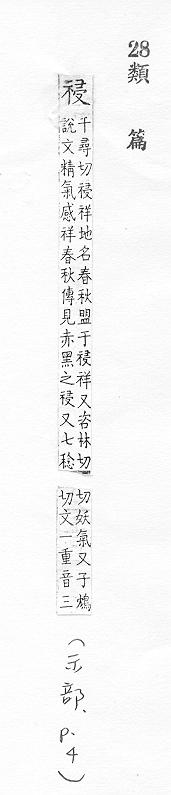 28類篇
祲
千尋切祲祥地名春秋盟于祲祥又咨林切
說文精氣感祥春秋傳見赤黑之祲又七稔
切妖氣又子鴆
切文一重音三
(示部、p.4)